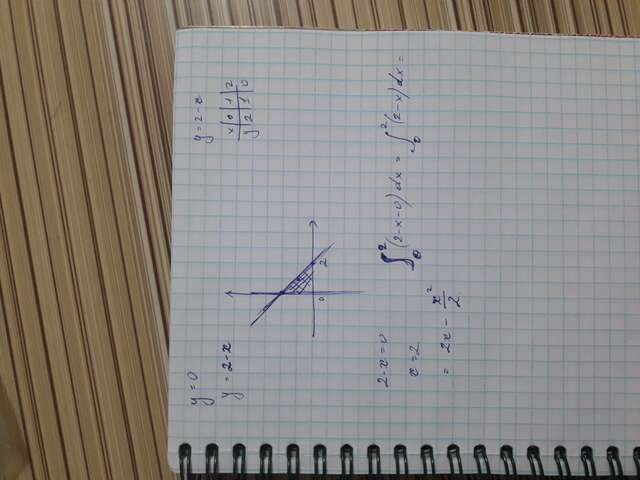 y = 0
y = 2-x
y = 2-x
x 0 1 2
y 2 1 0
0 2
2-x=0
x=2
∫₀² (2-x-0) dx = ∫₀² (2-x) dx =
= 2x - x²/2